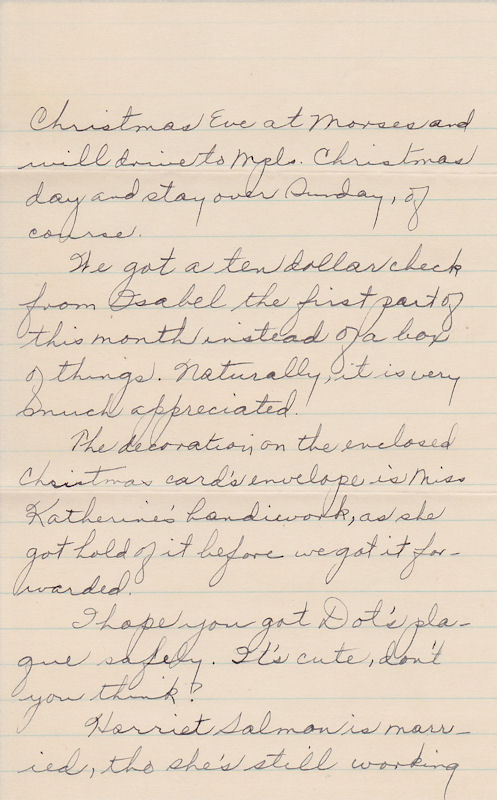 Christmas Eve at Morses and
will drive to Mpls. Christmas
day and stay over Sunday, of
course.
We got a ten dollar check
from Isabel the first part of
this month instead of a box
of things. Naturally, it is very
much appreciated.
The decoration on the enclosed
Christmas card's envelope is Miss
Katherine's handiwork, as she
got hold of it before we got it for-
warded.
I hope you got Dot's pla-
que safely. It's cute, don't
you think?
Harriet Salmon is marr-
ied, tho she's still working